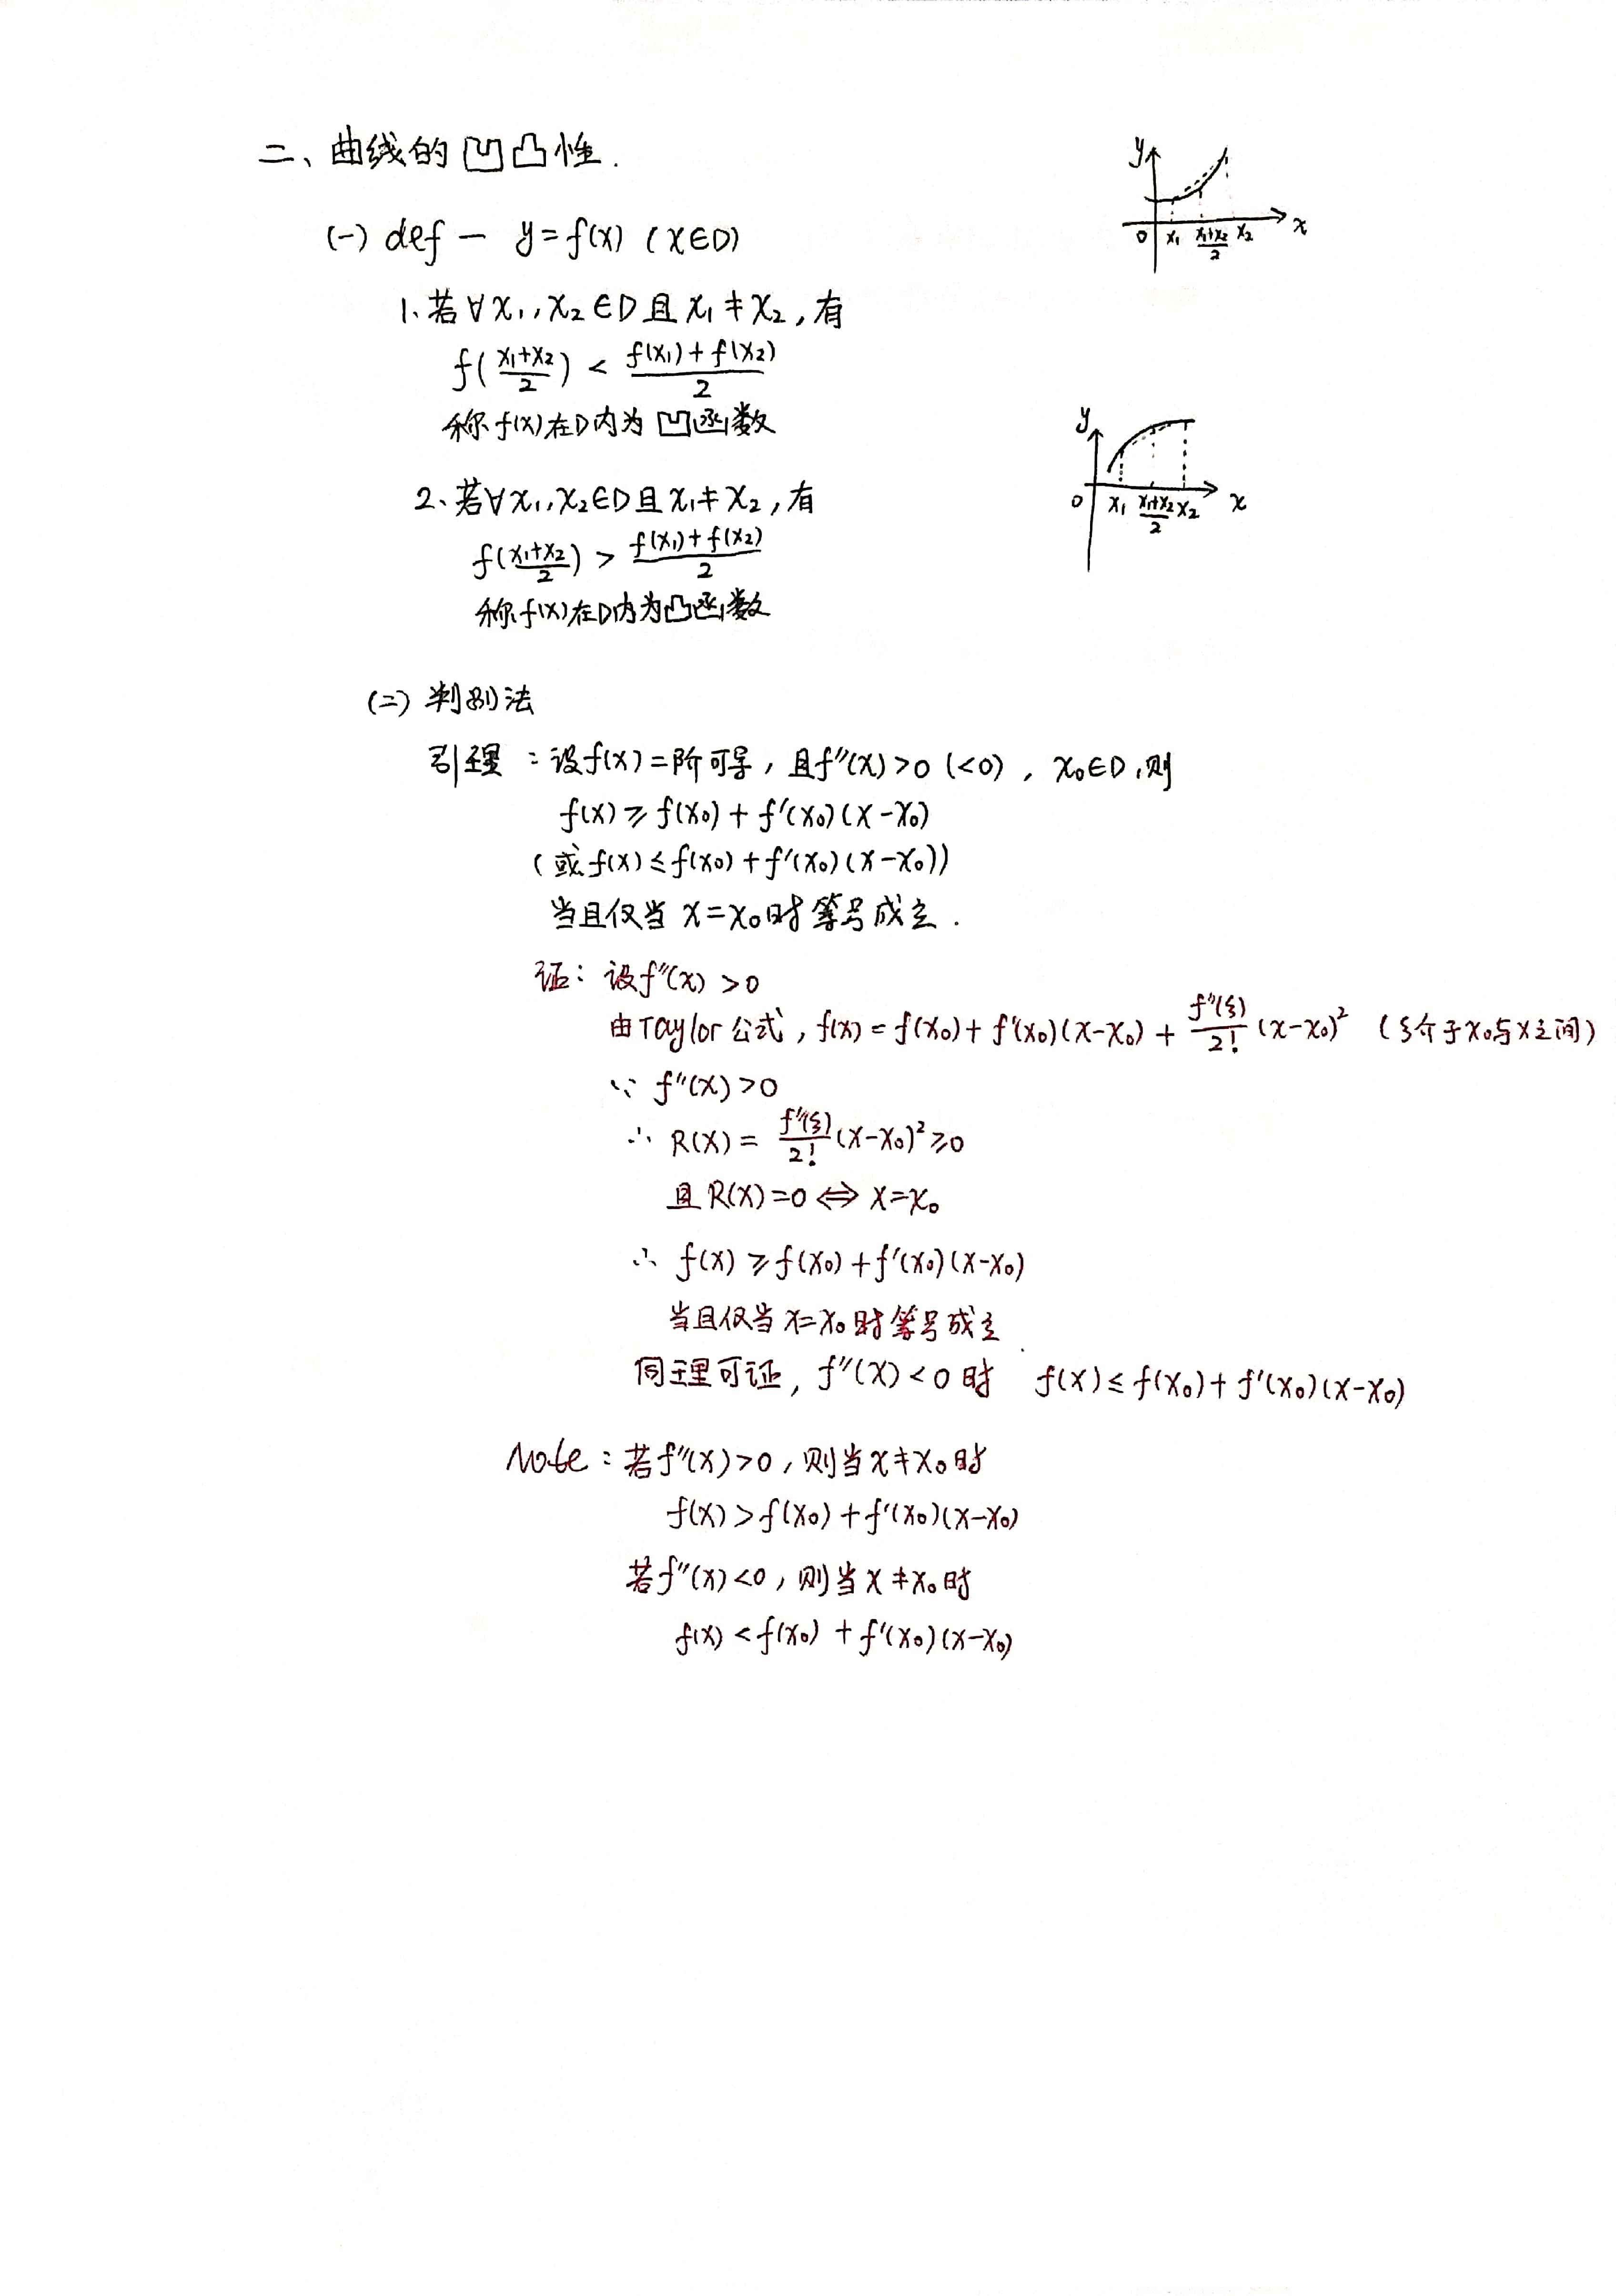 二、曲线的凹凸性.
(一) def — y=f(x) (x∈D)
1、若∀x₁,x₂∈D且x₁≠x₂,有
f((x₁+x₂)/2) < (f(x₁)+f(x₂))/2
称f(x)在D内为凹函数
y
0 x₁ (x₁+x₂)/2 x₂ x
2、若∀x₁,x₂∈D且x₁≠x₂,有
f((x₁+x₂)/2) > (f(x₁)+f(x₂))/2
称f(x)在D内为凸函数
y
0 x₁ (x₁+x₂)/2 x₂ x
(二) 判别法
引理:设f(x)二阶可导,且f″(x)>0 (<0), x₀∈D,则
f(x)≥f(x₀)+f′(x₀)(x-x₀)
(或f(x)≤f(x₀)+f′(x₀)(x-x₀))
当且仅当x=x₀时等号成立.
证:设f″(x)>0
由Taylor公式,f(x)=f(x₀)+f′(x₀)(x-x₀)+f″(ξ)/2!(x-x₀)² (ξ介于x₀与x之间)
∵ f″(x)>0
∴ R(x)=f″(ξ)/2!(x-x₀)²≥0
且R(x)=0⇔x=x₀
∴ f(x)≥f(x₀)+f′(x₀)(x-x₀)
当且仅当x=x₀时等号成立
同理可证,f″(x)<0时 f(x)≤f(x₀)+f′(x₀)(x-x₀)
Note:若f″(x)>0,则当x≠x₀时
f(x)>f(x₀)+f′(x₀)(x-x₀)
若f″(x)<0,则当x≠x₀时
f(x)<f(x₀)+f′(x₀)(x-x₀)